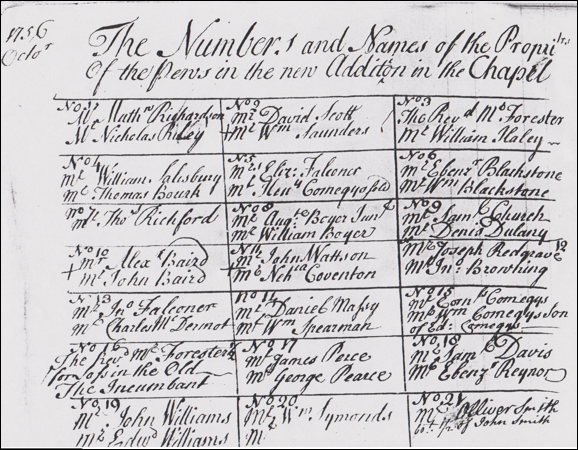 1756
Octor
The Numbers and Names of the Proprirs
Of the Pews in the new Additon in the Chapel
No. 1
Mr Mathw Richardson
Mr Nicholas Riley
No 2
Mr David Scott
+ Mr Wm Saunders
No 3
The Revd Mr Forester
Mr William Haley
No 4
Mr William Salsbury
Mr Thomas Bourk
No 5
Mrs Eliz: Falconer
Mr Heny Comegys
No 6
Mr Ebenzr Blackstone
Mr Wm Blackstone
No 7
Mr Thos Richford
No 8
Mr Augte Boyer Junr
Mr William Boyer
No 9
Mr Saml Church
Mr Denis Dulany
No 10
Mr Alexr Baird
+ Mr John Baird
No 11
Mr John Wattson
+ Mr Nehia Coventon
12
Mr Joseph Redgrave
Mr Jno. Browning
No 13
Mr Jno Falconer
Mr Charles Mc Dermot
No 14
Mr Daniel Massy
Mr Wm Spearman
No 15
Mr Corns Comegys
Mr Wm Comegys Son
of Ed: Comegys
No 16
The Revd Mr Forester
for in the Old
The Incumbant
No 17
Mr James Perce
Mr George Pearce
No 18
Mr Saml Davis
Mr Ebenzr Reynor
No 19
Mr John Williams
Mr Edwd Williams
No 20
Mr Wm Symonds
M
No 21
Mr Olliver Smith
of John Smith